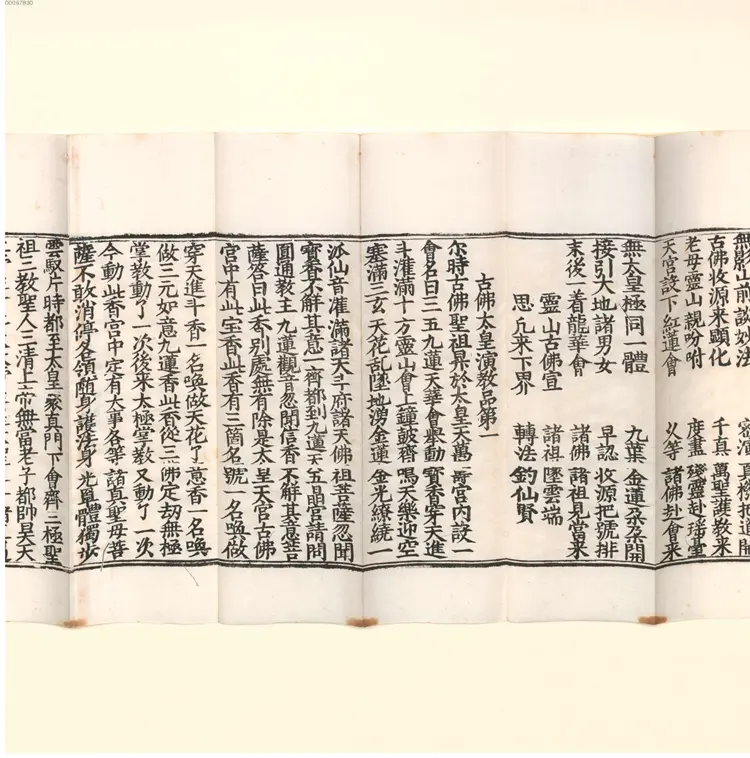 00057830
無影山前談妙法 演真機把道開
古佛收源来顯化 千真萬聖護教来
老母靈山親吩咐 度盡殘靈赴瑶堂
天宮設下紅蓮會 久等諸佛赴會来
無太皇極同一體 九葉金蓮朶朶開
接引大地諸男女 早認收源把號排
末後一着龍華會 諸佛諸祖見當来
靈山古佛宣 諸祖墜雲端
思凡来下界 轉法釣仙賢
古佛太皇演教品第一
尔時古佛聖祖昇於太皇天萬壽宮内設一
會名曰三五九蓮天華會舉動寳香穿天進
斗灌滿十方靈山會上鐘皷齊鳴天樂迎空
塞滿三玄天花乱墜地湧金蓮金光繚繞一
派仙音灌滿諸天斗府諸天佛祖菩薩忽聞
寳香不解其意一齊都到九蓮天五晶宮請問
圓通教主九蓮觀音忽聞信香不解其意菩
薩答曰此香别處無有除是太皇天宮古佛
宮中有此宝香此香有三箇名號一名喚做
穿天進斗香一名喚做天花了意香一名喚
做三元如意九蓮香此香從三佛定刼無極
掌教動了一次後来太極掌教又動了一次
今動此香宮中定有大事各等諸真聖母菩
薩不敢消停各領随身護法身光單體獨步
雲馭片時都至太皇聚真門下會齊三極聖
祖三教聖人三清上帝無當老子都帥昊天